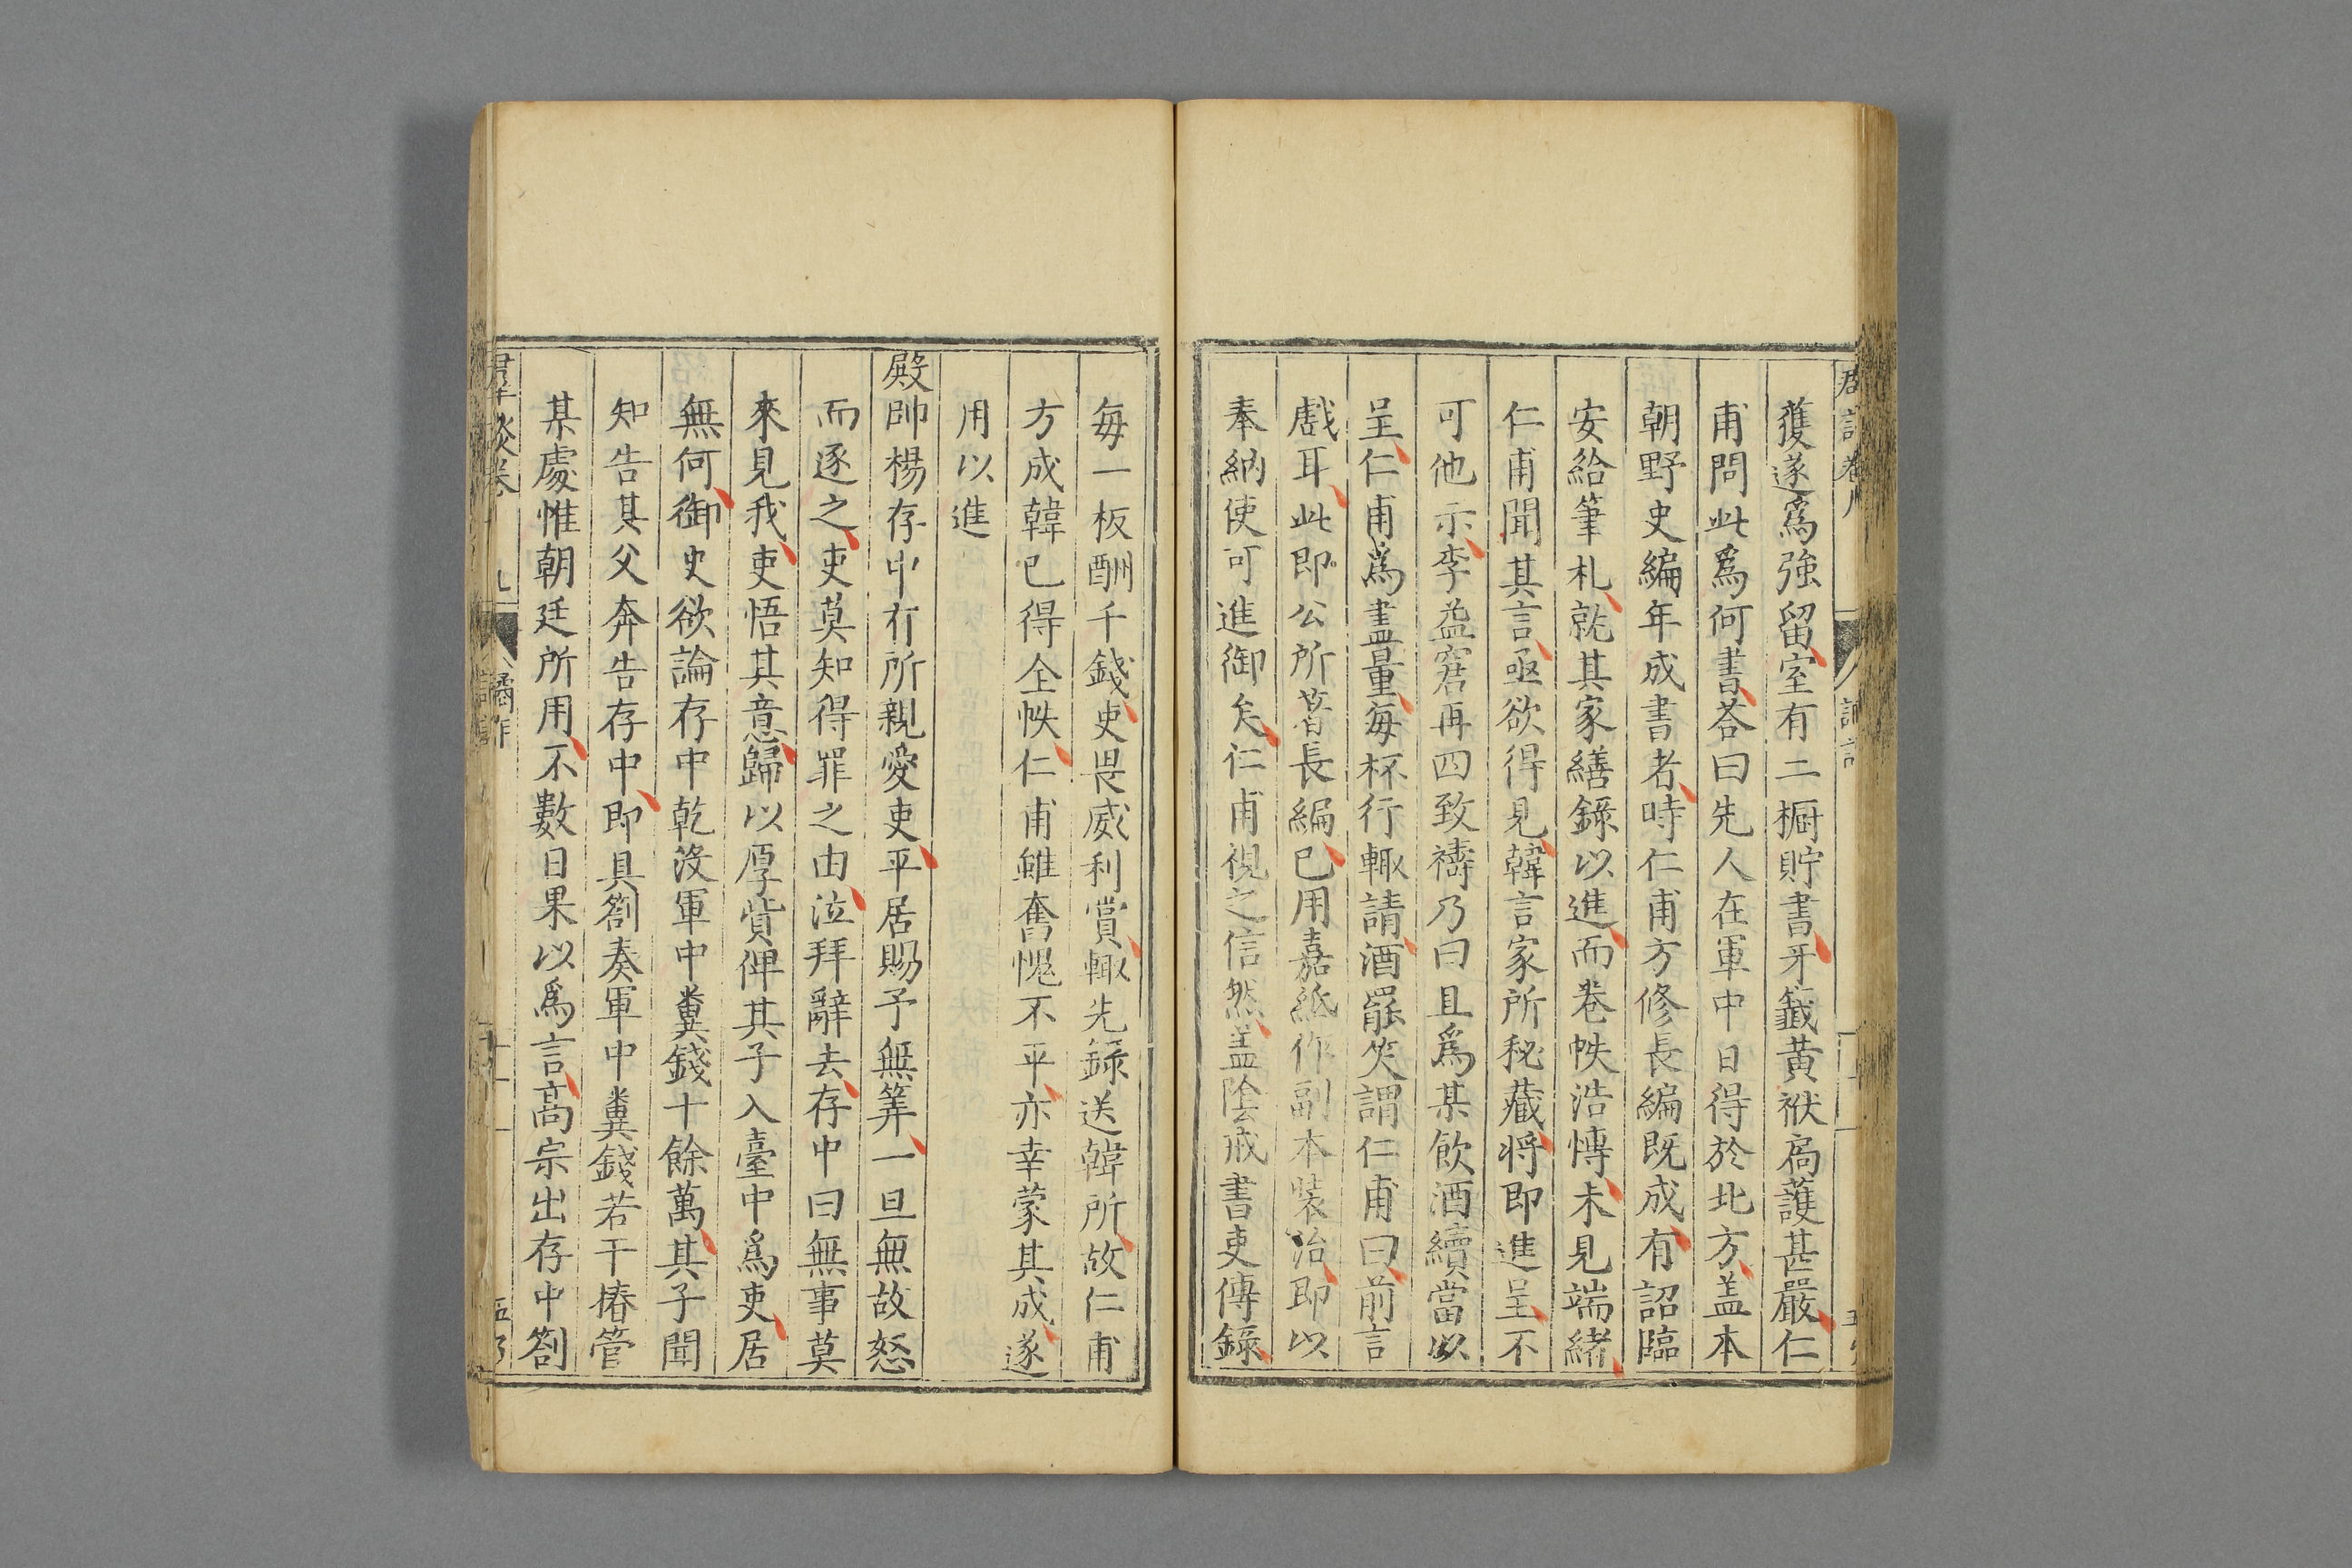 獲遂爲強留室有二櫥貯書牙籤黃袱扃護甚嚴仁
甫問此爲何書荅曰先人在軍中日得於北方盖本
朝野史編年成書者時仁甫方修長編既成有詔臨
安給筆札就其家繕錄以進而卷帙浩慱未見端緒
仁甫聞其言亟欲得見韓言家所秘藏将即進呈不
可他示李益窘再四致禱乃曰且爲某飲酒續當以
呈仁甫爲盡量每杯行輙請酒罷笑謂仁甫曰前言
戲耳此即公所著長編已用嘉紙作副本裝治即以
奉納使可進御矣仁甫視之信然盖陰戒書吏傳錄
每一板酬千錢吏畏威利賞輙先錄送韓所故仁甫
方成韓已得全帙仁甫雖奮愧不平亦幸蒙其成遂
用以進
殿帥楊存中有所親愛吏平居賜予無筭一旦無故怒
而逐之吏莫知得罪之由泣拜辭去存中曰無事莫
來見我吏悟其意歸以厚貲俾其子入臺中爲吏居
無何御史欲論存中乾沒軍中糞錢十餘萬其子聞
知告其父奔告存中即具劄奏軍中糞錢若干樁管
某處惟朝廷所用不數日果以爲言高宗出存中劄